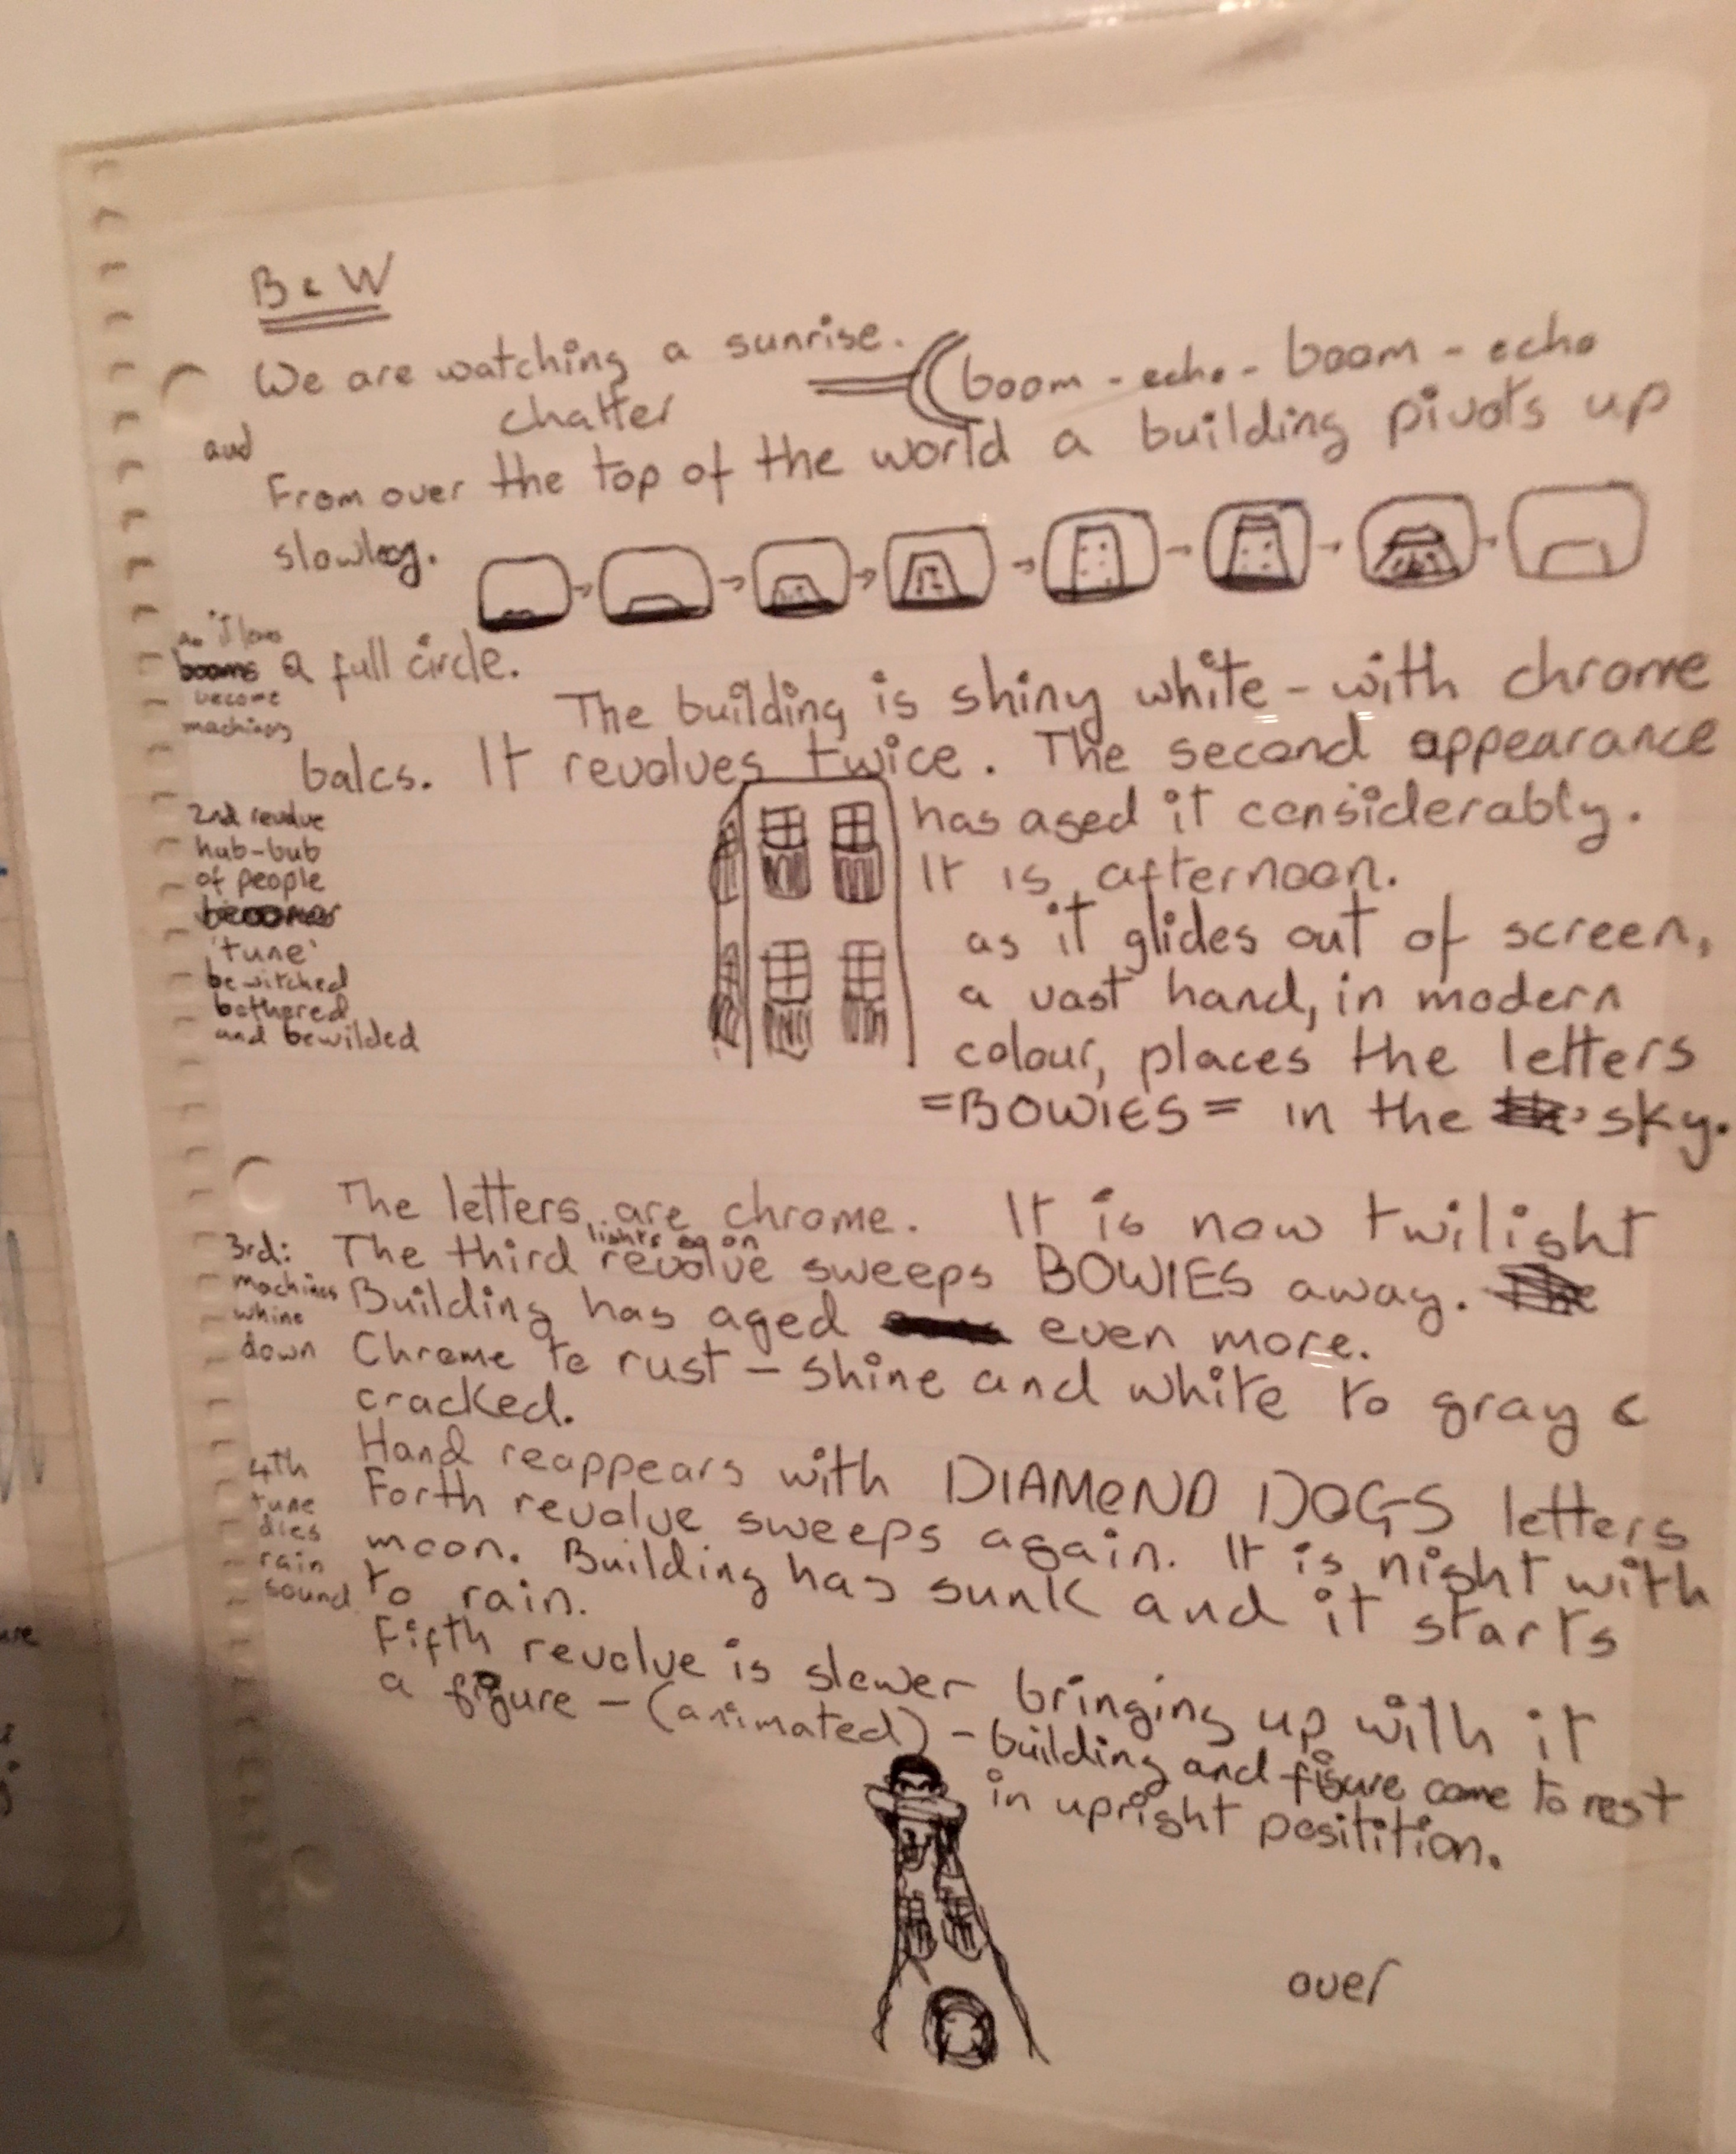 B & W
We are watching a sunrise. boom - echo - boom - echo
chatter
and
From over the top of the world a building pivots up
slowly.
a full circle.
become
machines
The building is shiny white - with chrome
balcs. It revolves twice. The second appearance
has aged it considerably.
It is afternoon.
as it glides out of screen,
a vast hand, in modern
colour, places the letters
=BOWIES= in the sky.
2nd revolve
hub-bub
of people
'tune'
bewitched
bothered
and bewilded
The letters are chrome. It is now twilight
lights go on
The third revolve sweeps BOWIES away.
Building has aged even more.
Chrome to rust - shine and white to gray &
cracked.
3rd:
machines
whine
down
Hand reappears with DIAMOND DOGS letters
Forth revolve sweeps again. It is night with
moon. Building has sunk and it starts
to rain.
4th
tune
dies
rain
sound
Fifth revolve is slower bringing up with it
a figure - (animated) - building and figure come to rest
in upright positition.
over